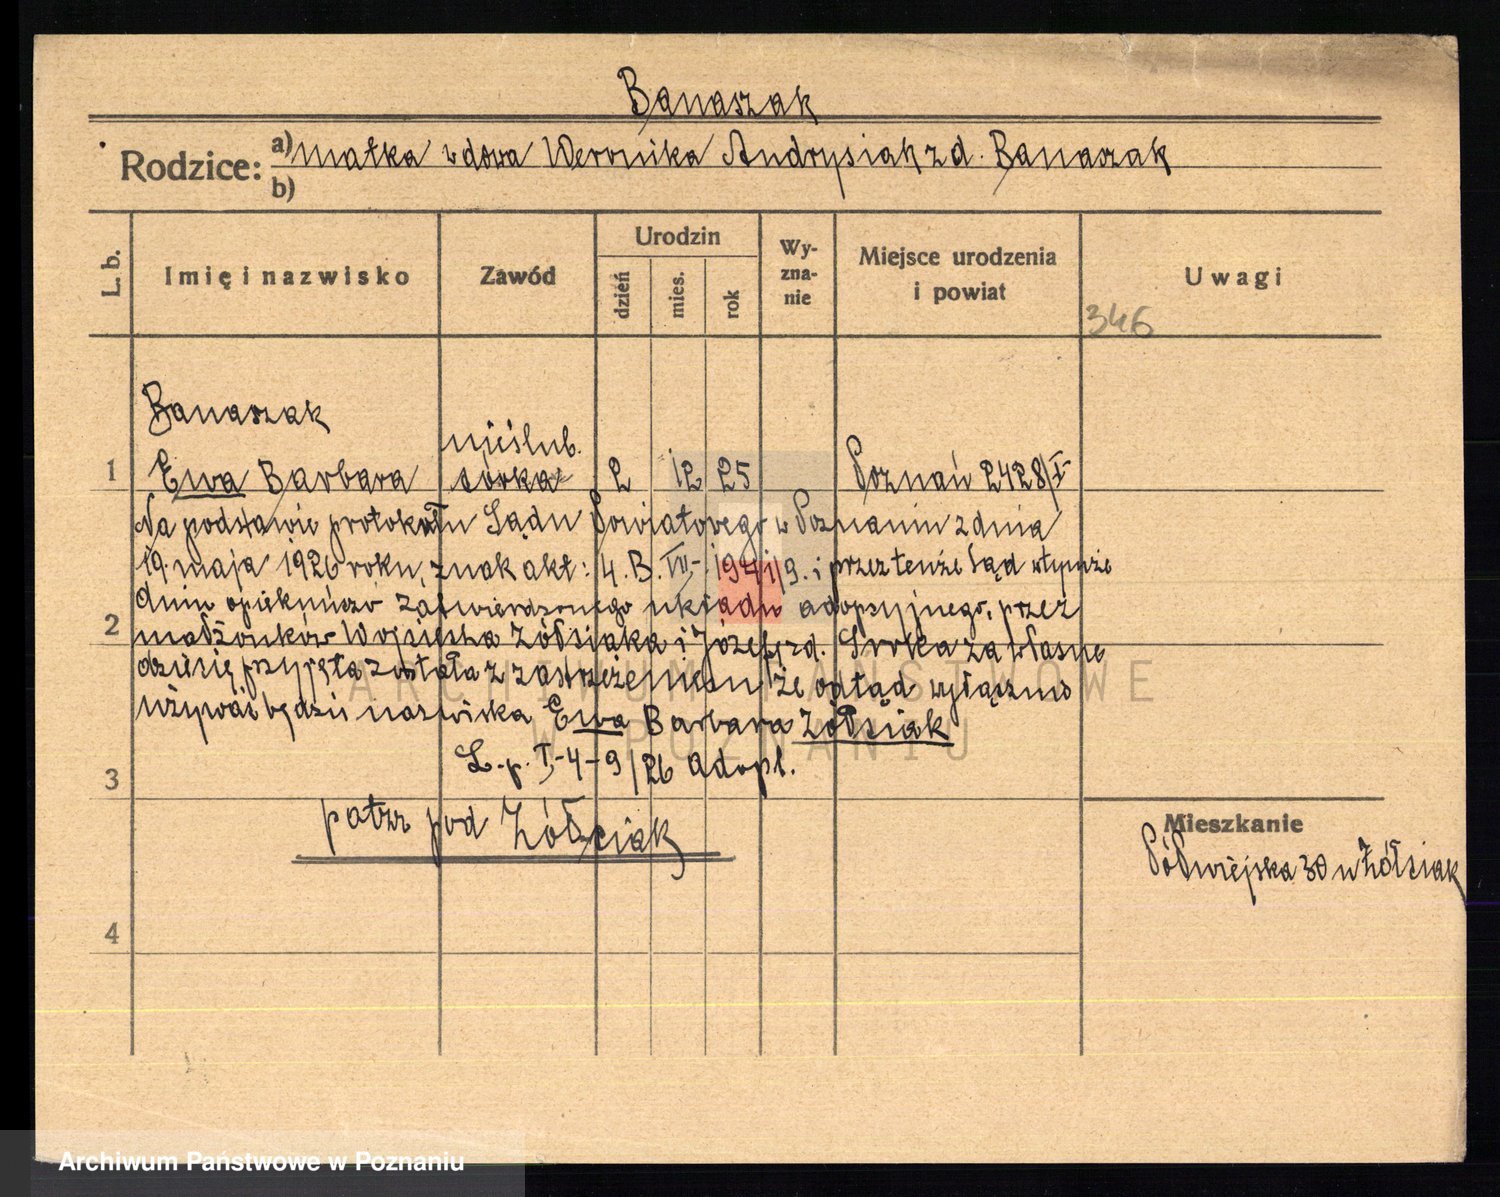 Banaszak
Rodzice: a) matka wdowa Weronika Andrysiak z d. Banaszak
b)
L. b.
Imię i nazwisko
Zawód
Urodzin
dzień
mies.
rok
Wy-
zna-
nie
Miejsce urodzenia
i powiat
Uwagi
346
Banaszak
nieślub.
1 Ewa Barbara córka 2 12 25 Poznań 2428/I
Na podstawie protokołu Sądu Powiatowego w Poznaniu z dnia
19. maja 1926 roku, znak akt: 4. B. VII- 1941/9. i przez tenże Sąd w tymże
dniu opiekuńczo zatwierdzonego układu adopcyjnego, przez
2 małżonków Wojciecha Żółsiaka i Józefę z d. za własne
dziecię przyjęta została z zastrzeżeniem że odtąd wyłącznie
używać będzie nazwiska Ewa Barbara Żółsiak
L. p. I.-4-9/26 adopl.
3
patrz pod Żółsiak
Mieszkanie
Półwiejska 30 u Żółsiak
4
ARCHIWUM PAŃSTWOWE
W POZNANIU
Archiwum Państwowe w Poznaniu